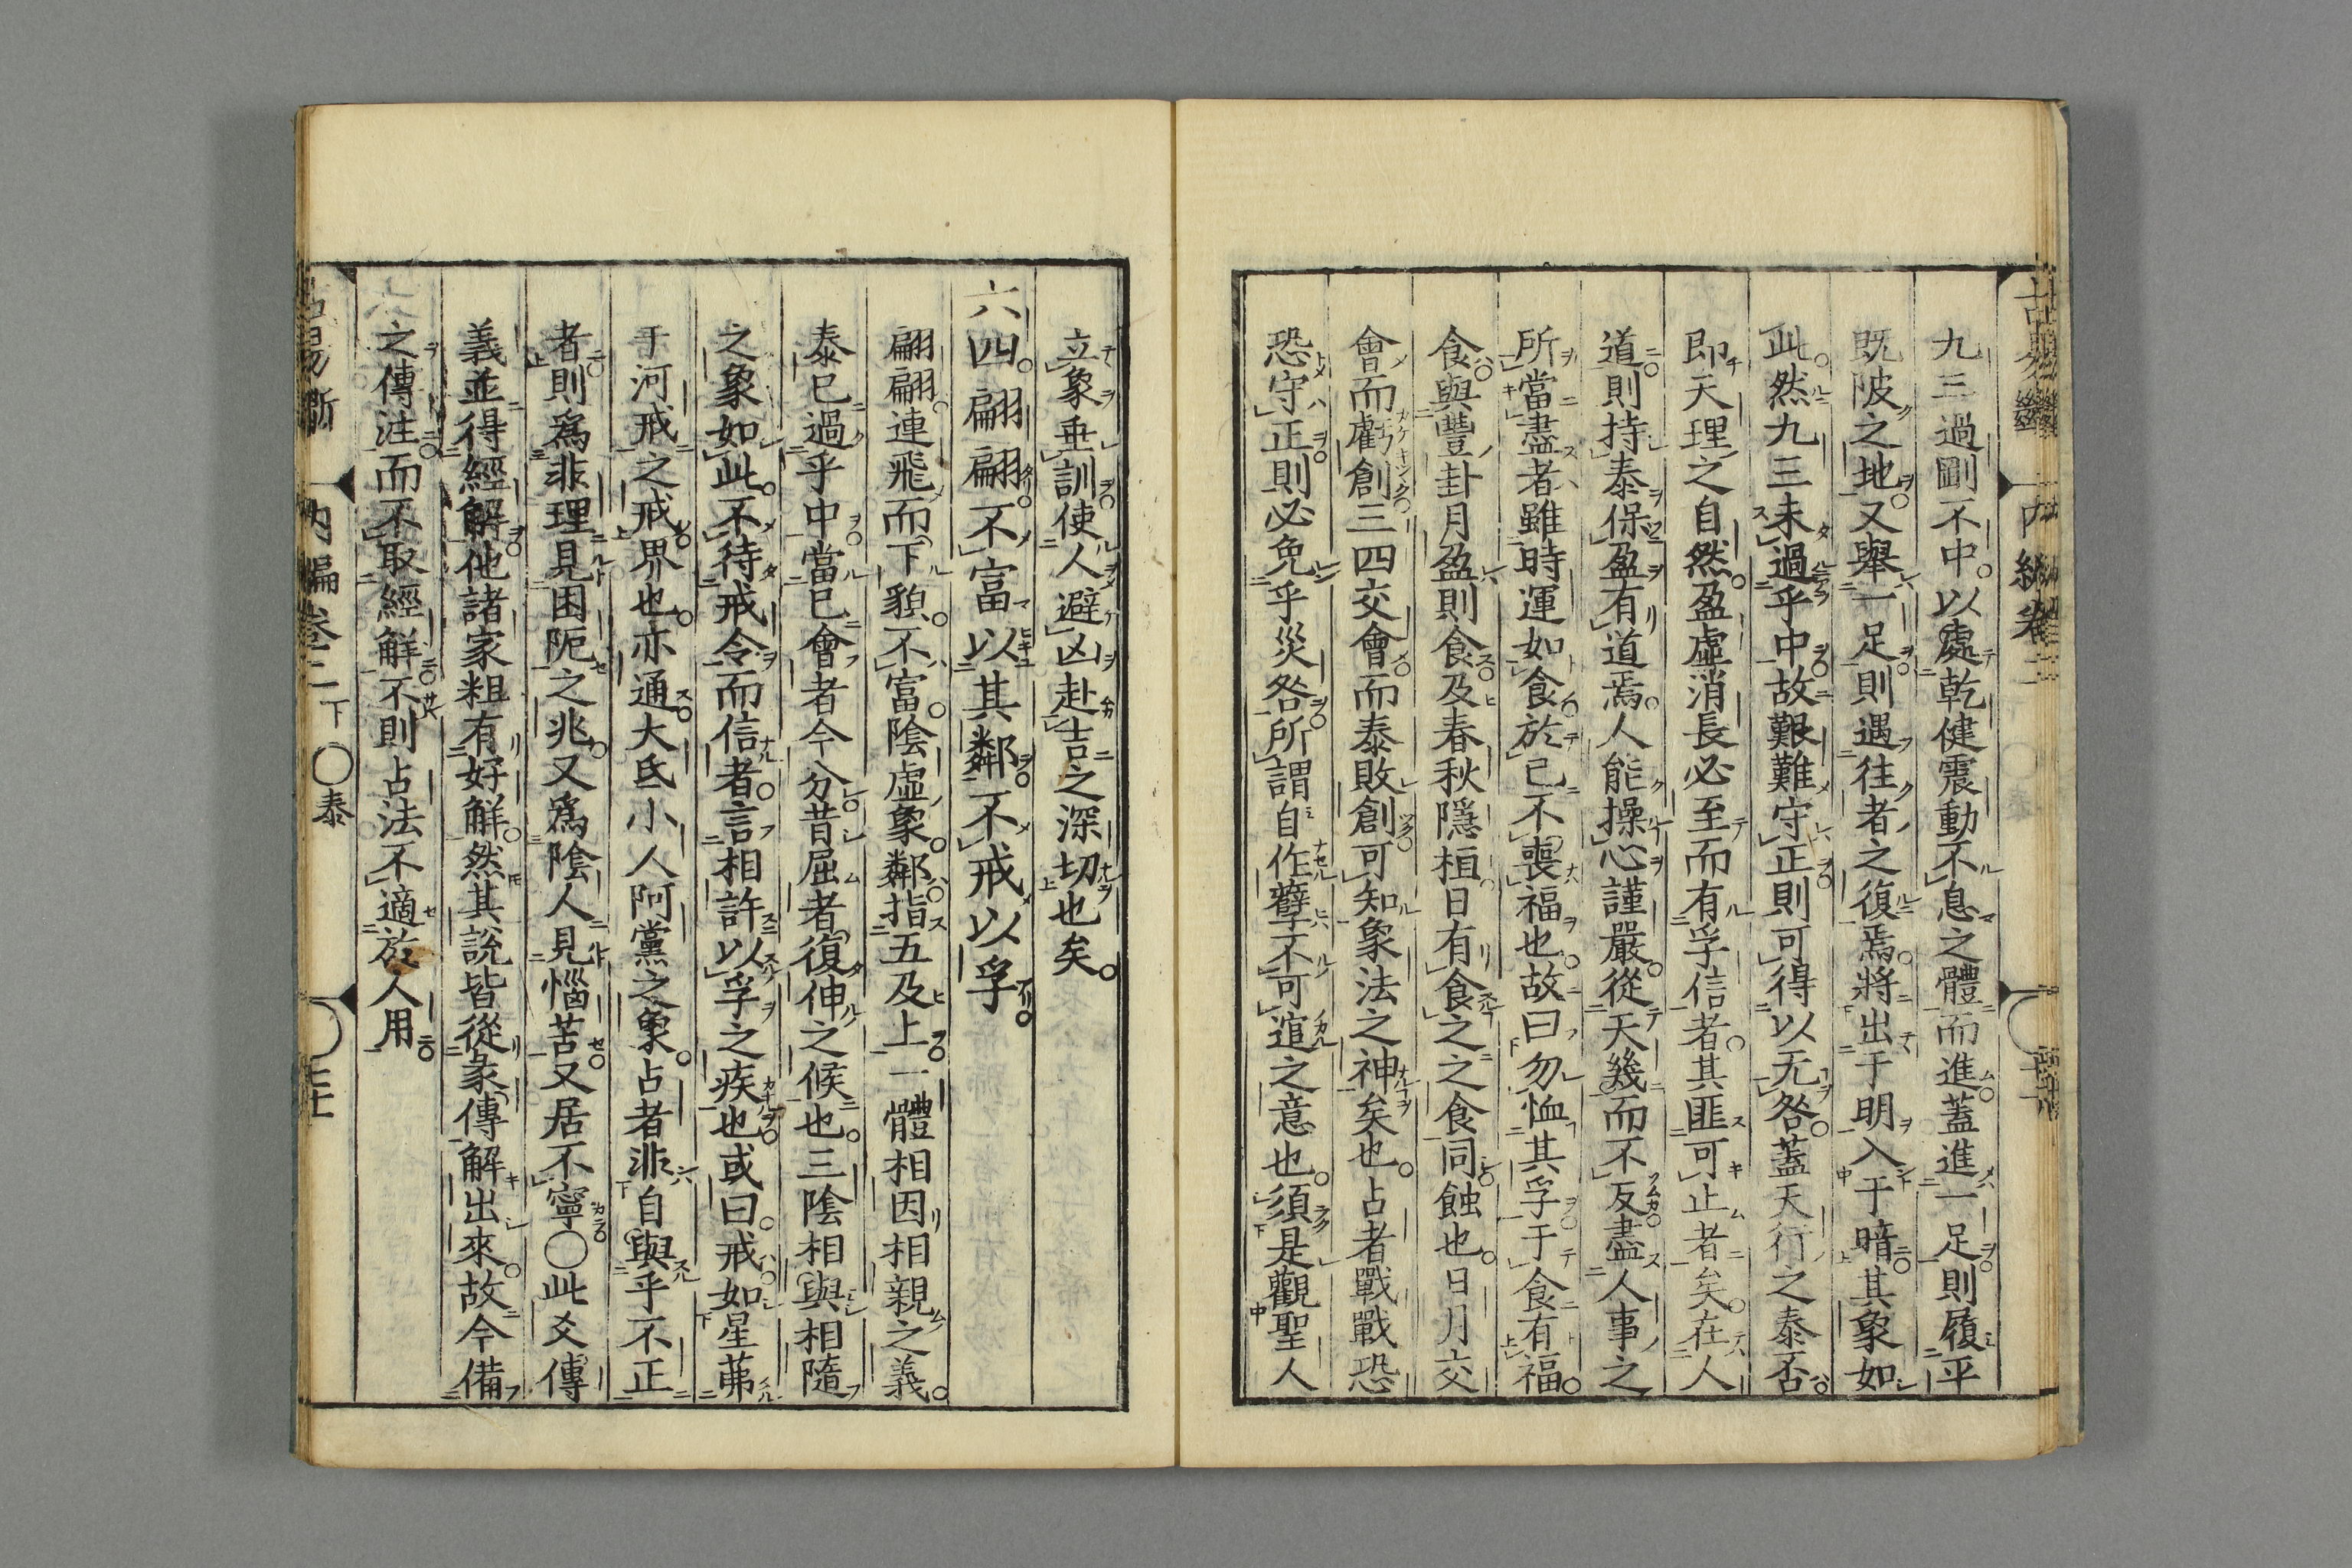 九三過剛不中以處乾健震動不息之體而進蓋進一足則履平
既陂之地又舉一足則遇往者之復焉將出于明入于暗其象如
此然九三未過乎中故艱難守正則可得以无咎蓋天行之泰否
即天理之自然盈虛消長必至而有孚信者其匪可止者矣在人
道則持泰保盈有道焉人能操心謹嚴從天幾而不反盡人事之
所當盡者雖時運如食於己不喪福也故曰勿恤其孚于食有福
食與豐卦月盈則食及春秋隱桓日有食之之食同蝕也日月交
會而虧創三四交會而泰敗創可知象法之神矣也占者戰戰恐
恐守正則必免乎災咎所謂自作孽不可逭之意也須是觀聖人
立象垂訓使人避凶赴吉之深切也矣
六四翩翩不富以其鄰不戒以孚
翩翩連飛而下貌不富陰虛象鄰指五及上一體相因相親之義
泰已過乎中當已會者今分昔屈者復伸之候也三陰相與相隨
之象如此不待戒令而信者言相許以孚之疾也或曰戒如星茀
于河戒之戒界也亦通大氐小人阿黨之象占者非自與乎不正
者則爲非理見困阨之兆又爲陰人見惱苦又居不寧〇此爻傳
義並得經解他諸家粗有好解然其說皆從彖傳解出來故今備
之傳注而不取經解不則占法不適於人用
古易斷 內編卷二下 〇泰